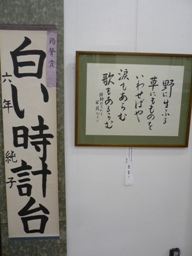 白い時計台
六年
純子
野に生ふる
草にもものを
いわせばや
涙もあらむ
歌もあるらむ